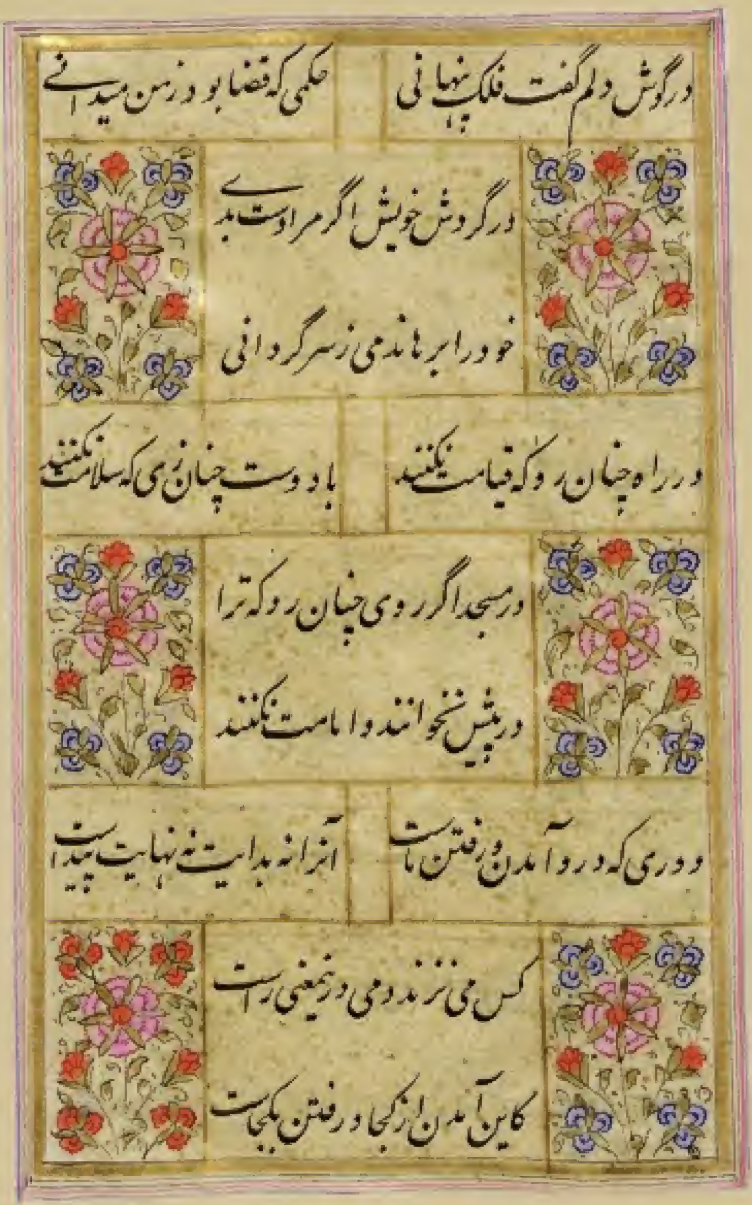 در گوش دلم گفت فلک پنهانی
حکمی که قضا بود ز من میدانی
در گردش خویش اگر مرا دست بدی
خود را برهاندمی ز سرگردانی
در راه چنان رو که قیامت نکنند
با دوست چنان زی که سلامت نکنند
در مسجد اگر روی چنان رو که ترا
در پیش نخوانند و امامت نکنند
دوری که درو آمدن و رفتن ماست
آنرا نه بدایت نه نهایت پیداست
کس می نزند دمی درینمعنی راست
کاین آمدن از کجا و رفتن بکجاست